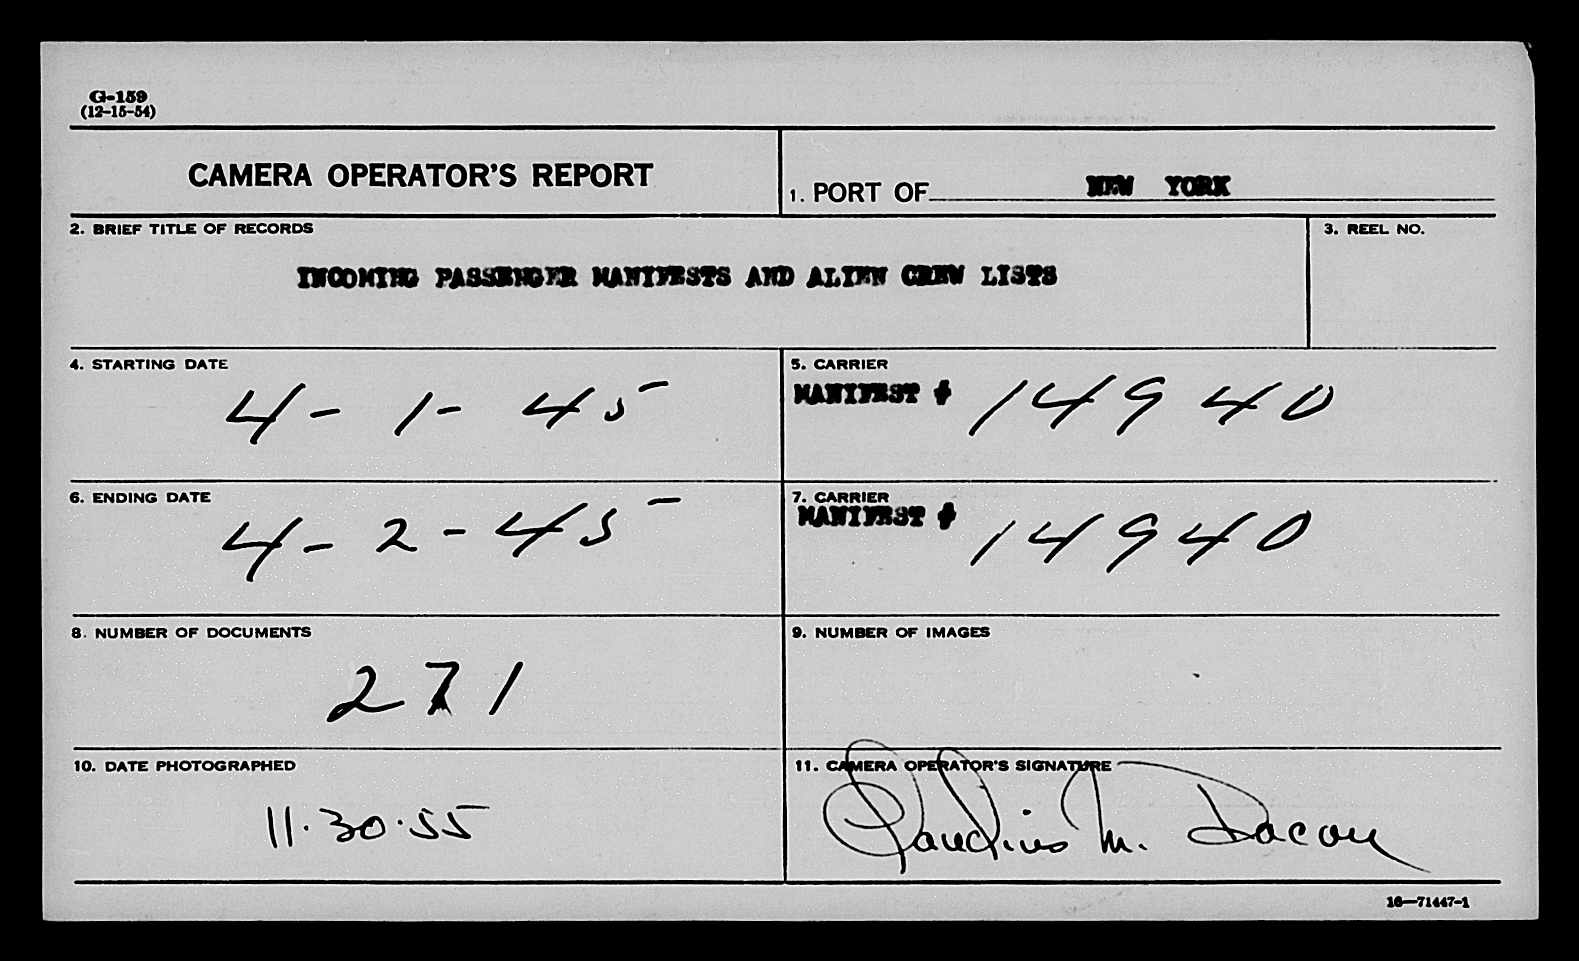 G-159
(12-15-54)
CAMERA OPERATOR'S REPORT
1. PORT OF NEW YORK
2. BRIEF TITLE OF RECORDS
INCOMING PASSENGER MANIFESTS AND ALIEN CREW LISTS
3. REEL NO.
4. STARTING DATE
4-1-45
5. CARRIER
MANIFEST # 14940
6. ENDING DATE
4-2-45
7. CARRIER
MANIFEST # 14940
8. NUMBER OF DOCUMENTS
271
9. NUMBER OF IMAGES
10. DATE PHOTOGRAPHED
11.30.55
11. CAMERA OPERATOR'S SIGNATURE
Claudius M.
16—71447-1